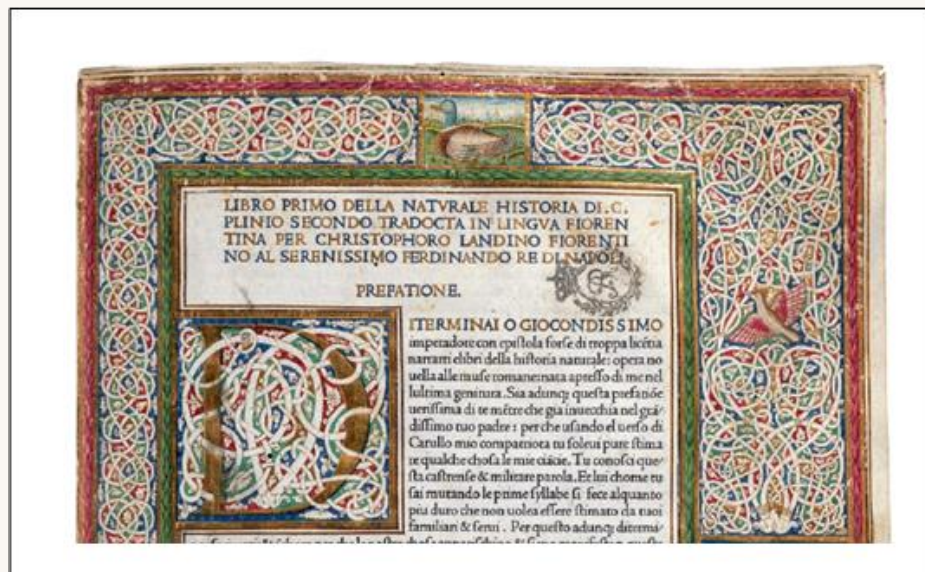 LIBRO PRIMO DELLA NATVRALE HISTORIA DI .C.
PLINIO SECONDO TRADOCTA IN LINGVA FIOREN
TINA PER CHRISTOPHORO LANDINO FIORENTI
NO AL SERENISSIMO FERDINANDO RE DI NAPOLI
PREFATIONE.
DITERMINAI O GIOCONDISSIMO
imperadore con epistola forse di troppa licẽtia
narrarti elibri della historia naturale: opera no
uella alle muse romane: nata apresso di me nel
lultima genitura. Sia adunq; questa prefatiõe
uerissima di te mẽtre che gia inuecchia nel grã
dissimo tuo padre: perche usando el uerso di
Catullo mio compatriota tu soleui pure stima
re qualche chosa le mie ciãcie. Tu conosci que
sta castrense & militare parola. Et lui chome tu
sai mutando le prime syllabe si fece alquanto
piu duro che non uolea essere stimato da tuoi
familiari & serui. Per questo adunq; ditermi